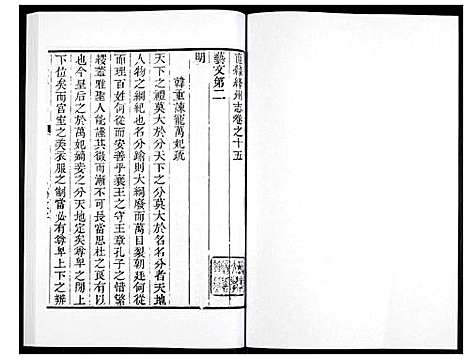 直隸絳州志卷之十五
藝文第二
明
韓重諫寵萬妃疏
天下之禮莫大於分天下之分莫大於名名分者天地
人物之綱紀也名分踰則大綱廢而萬目裂朝廷何從
而理百姓何從而安善乎襄王之守王章孔子之惜繁
纓蓋雖聖人能謹其微而漸不可長當思杜之良有以
也今皇后之於萬妃嫡妾之分天地定矣尊卑之別上
下位矣而宮室之美衣服之制當必有尊卑上下之辨